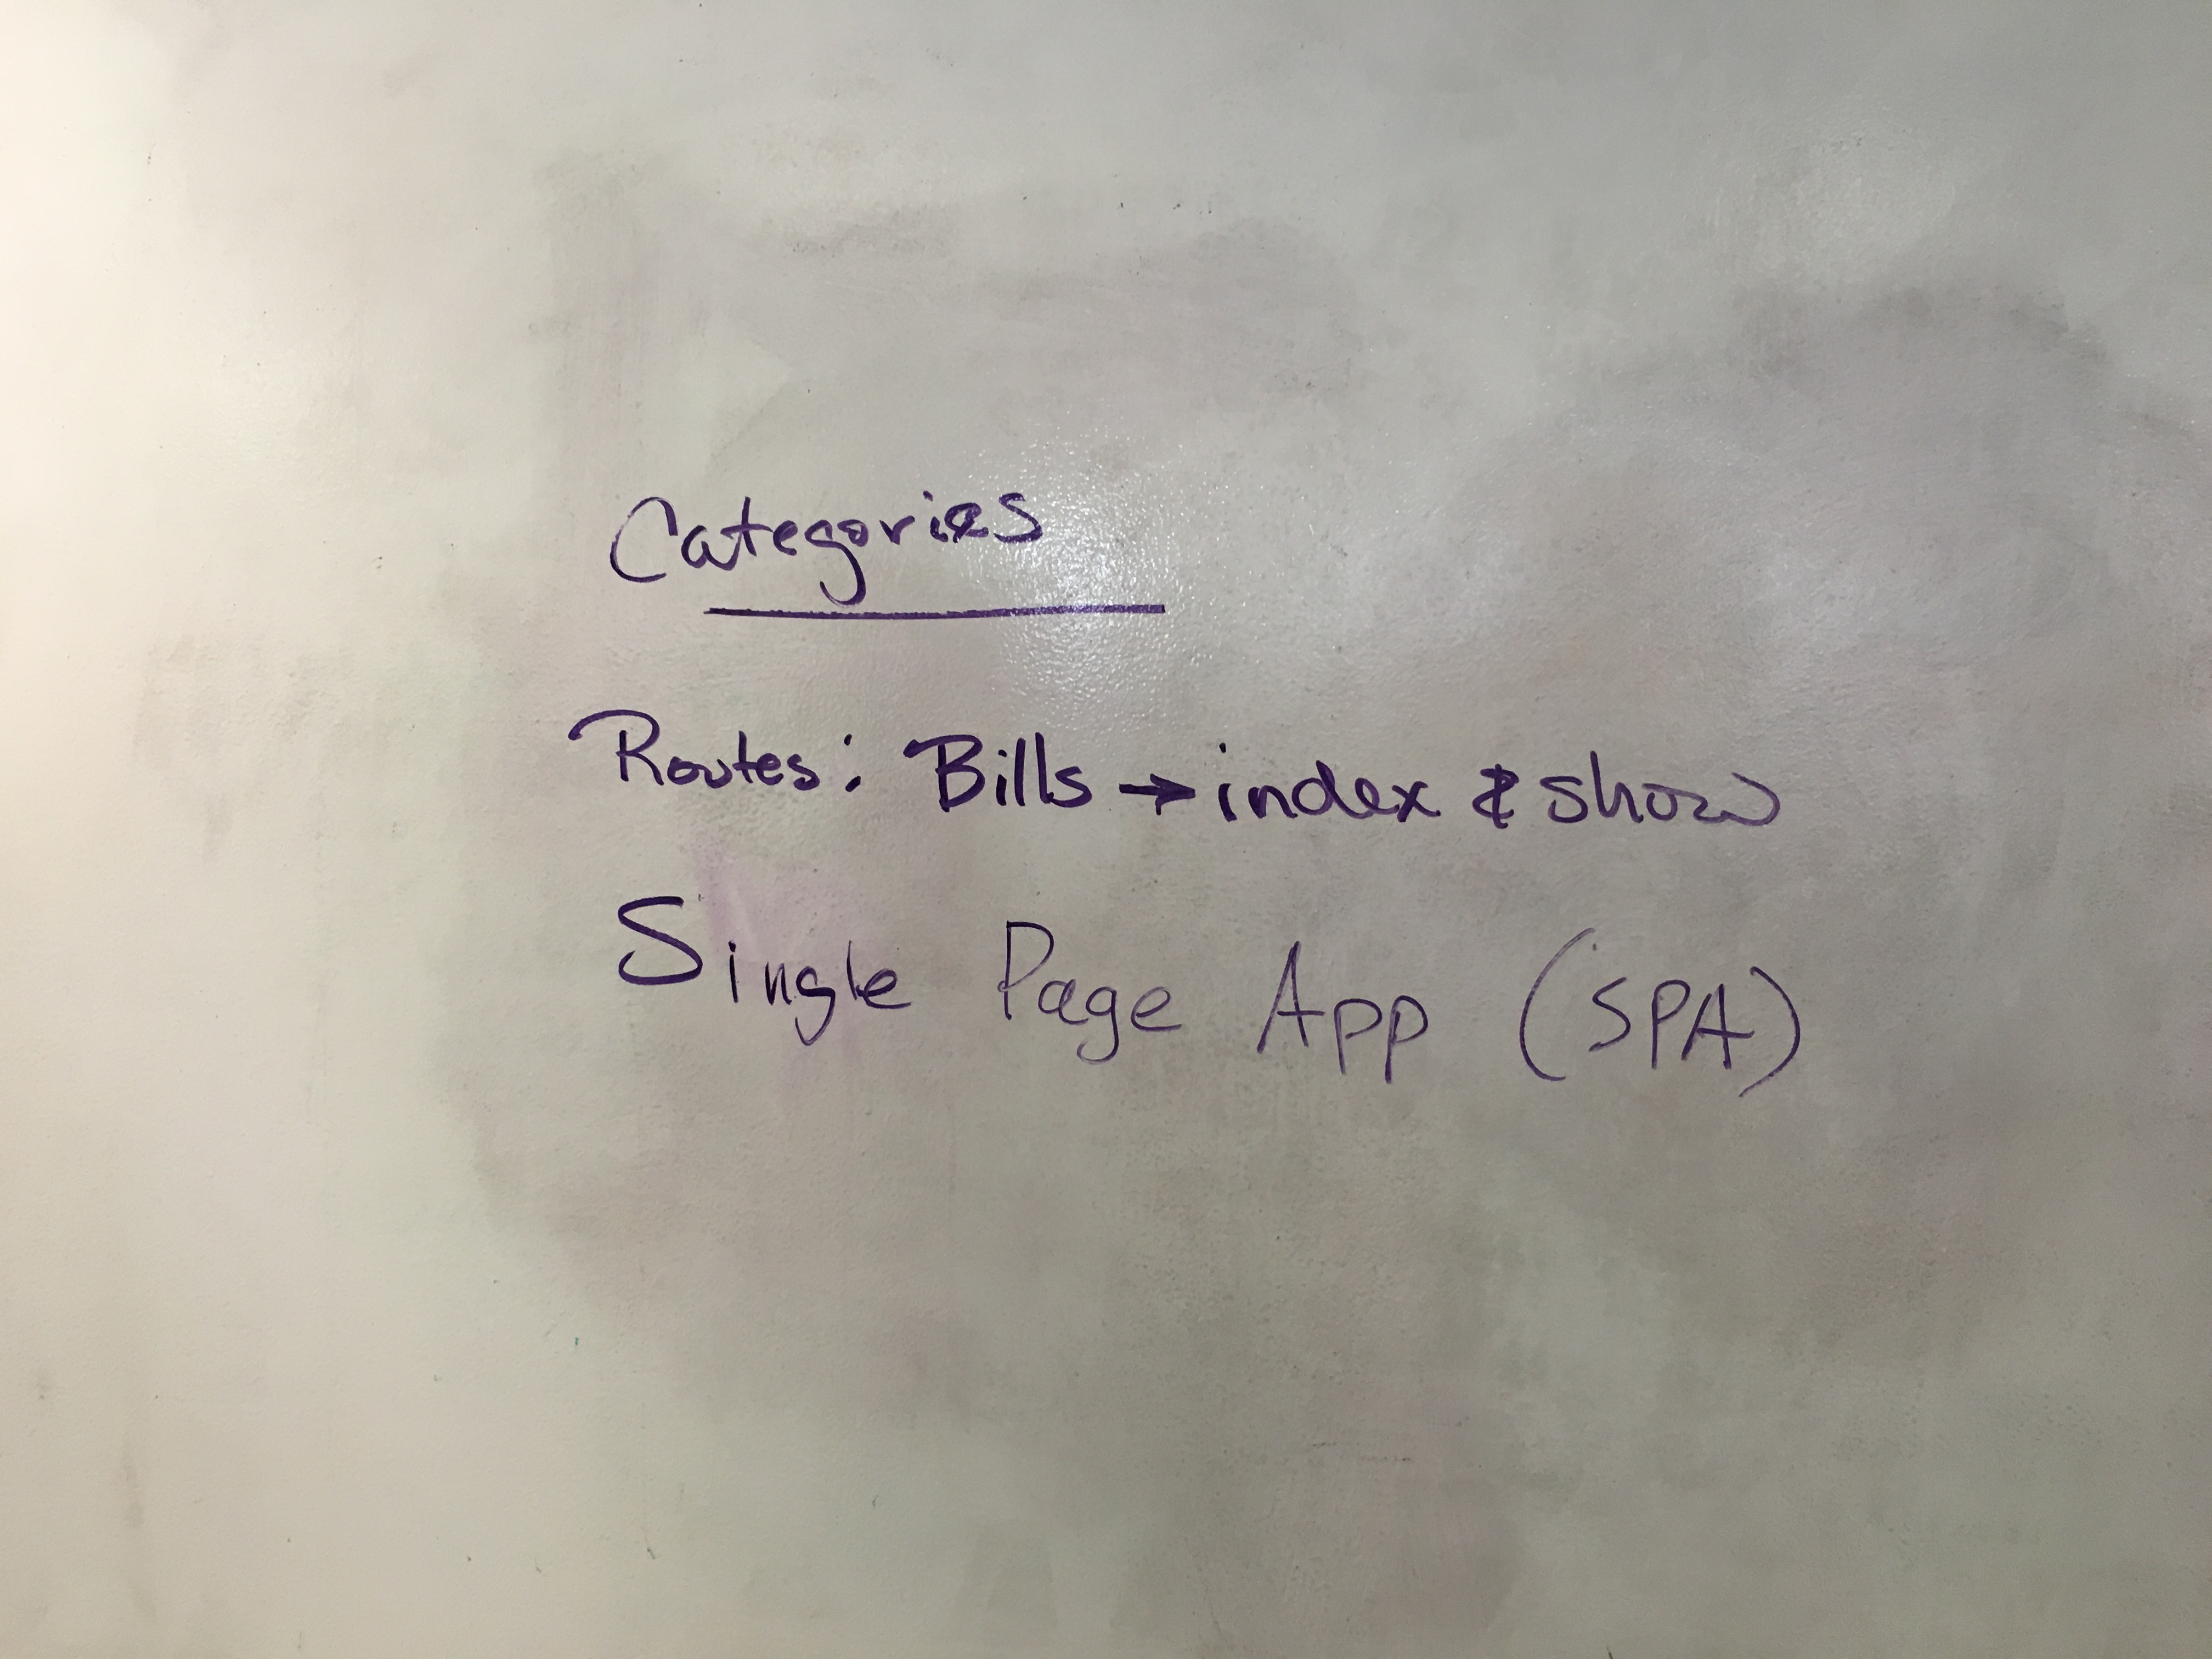 Categories
Routes: Bills → index & show
Single Page App (SPA)